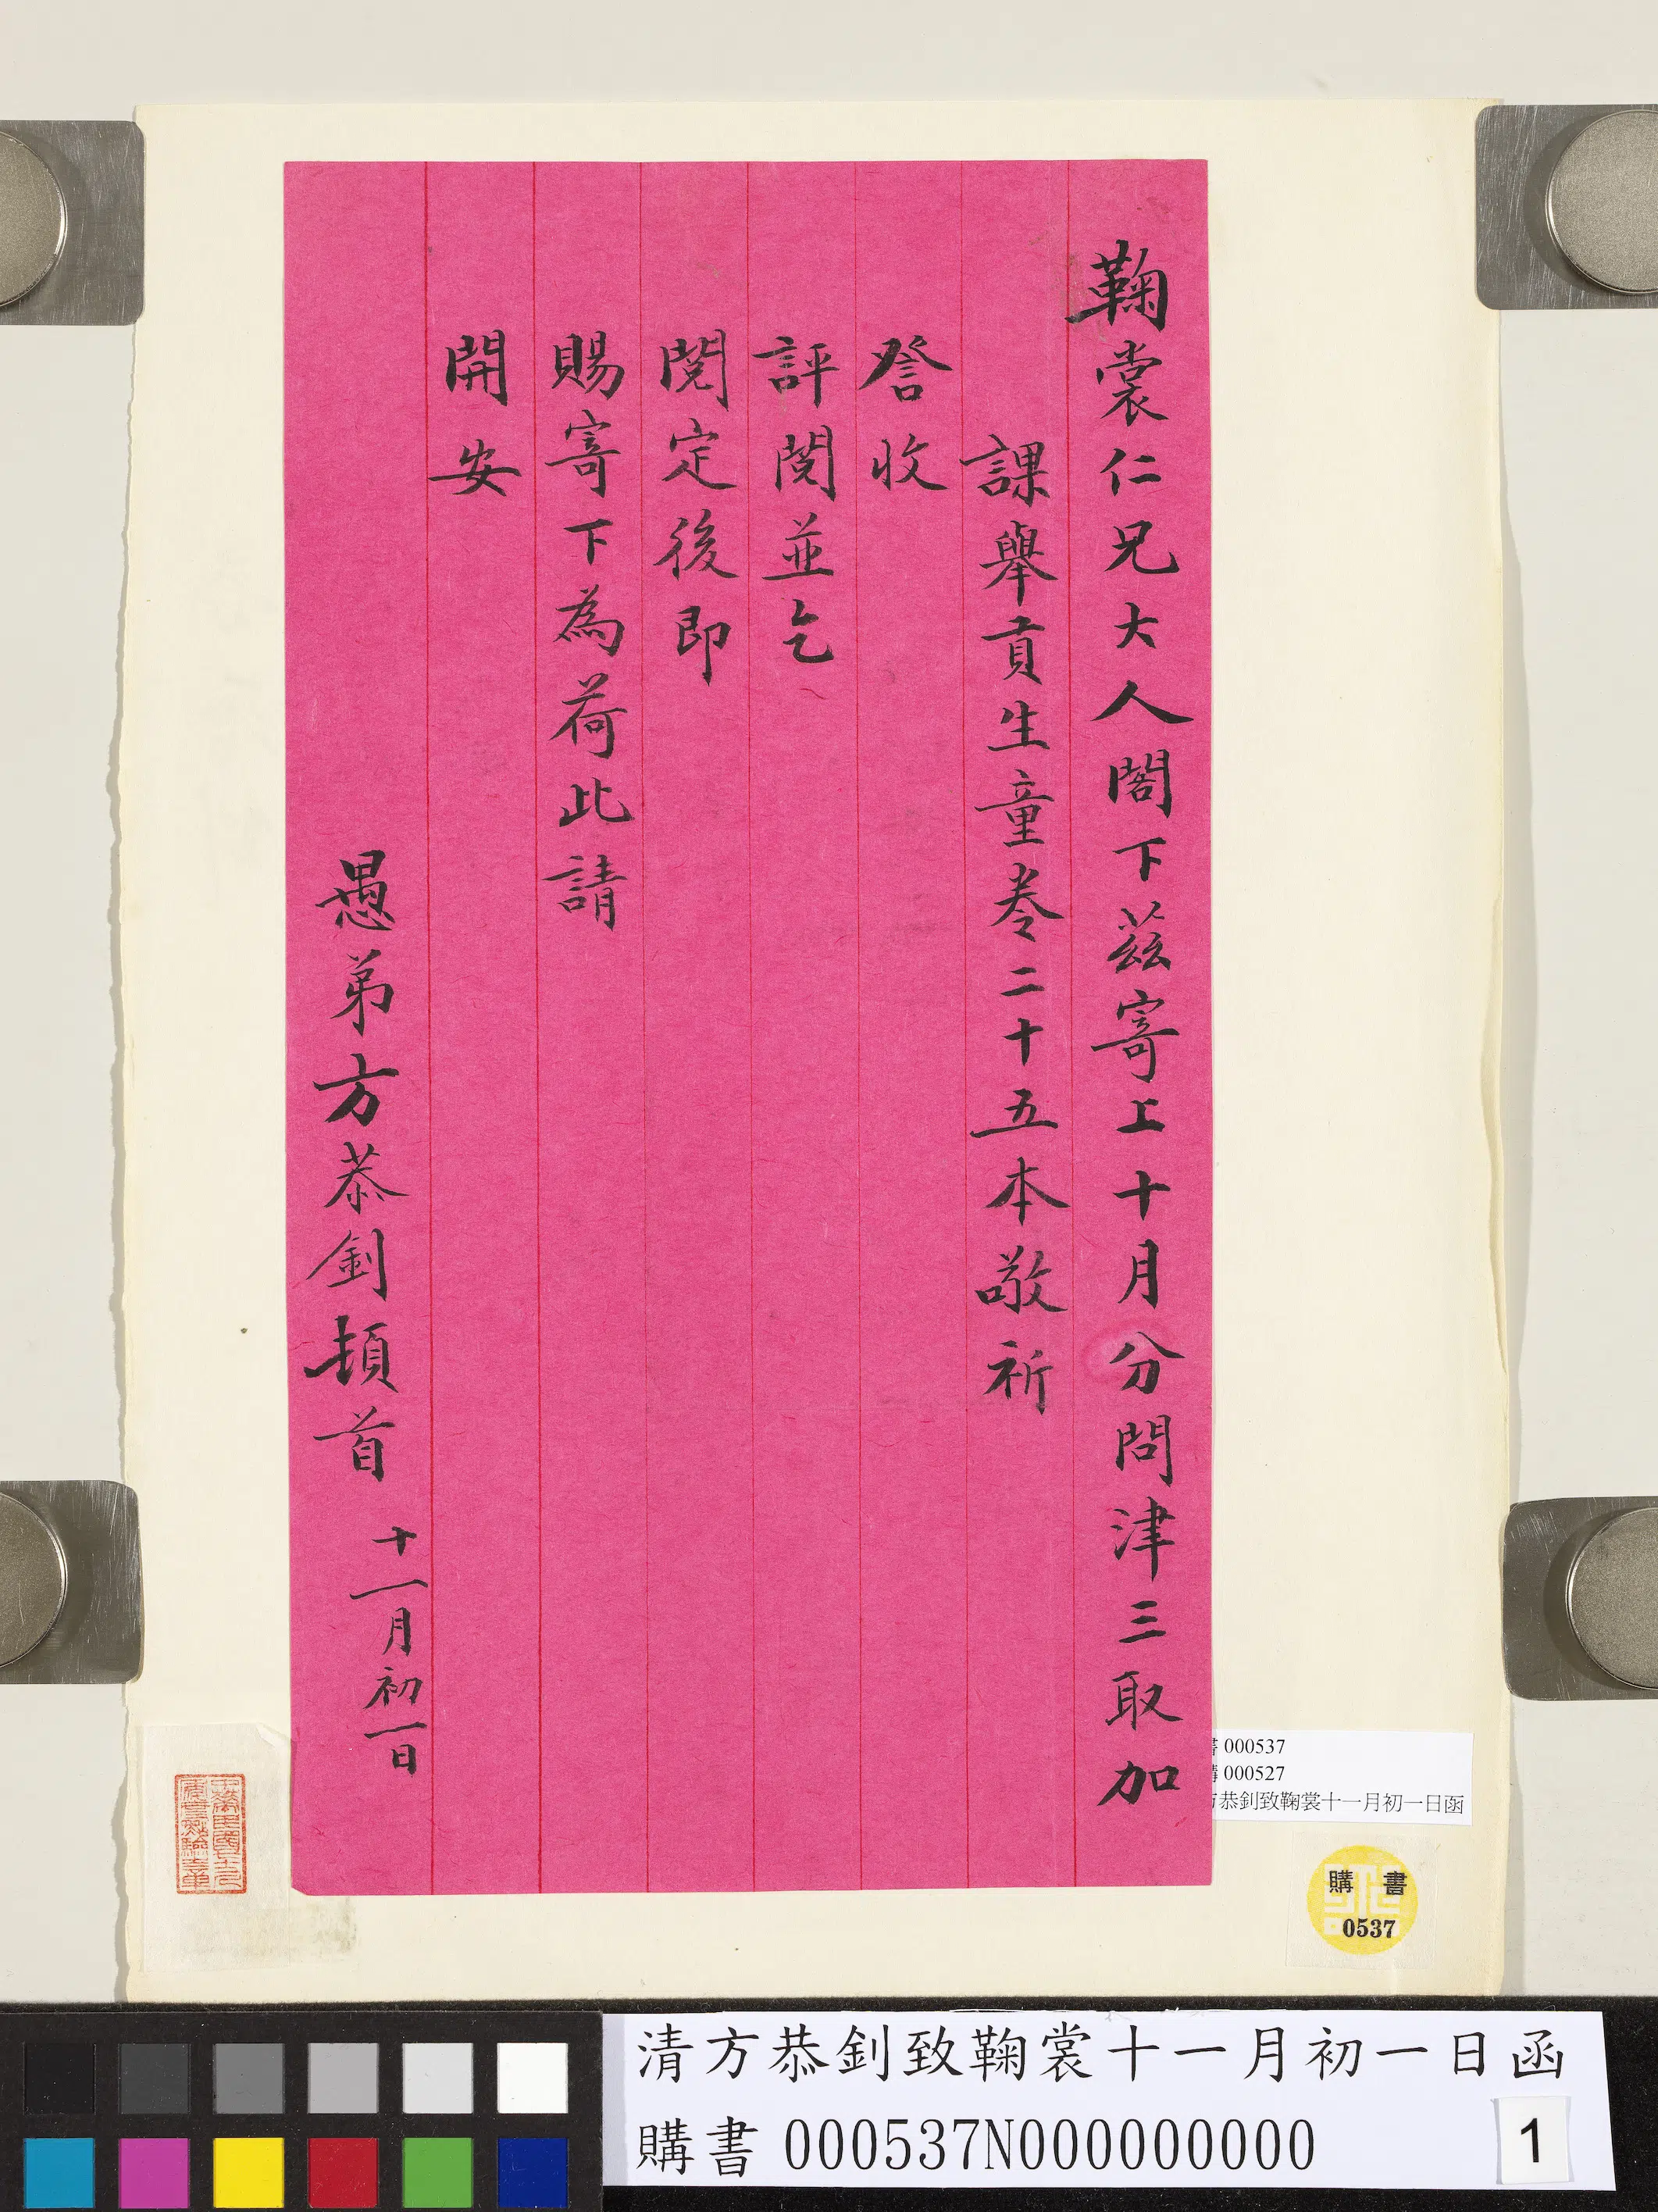 鞠裳仁兄大人閣下茲寄上十月分問津三取加
課舉貢生童卷二十五本敬祈
詧收
評閱並乞
閱定後即
賜寄下為荷此請
開安
愚弟方恭釗頓首 十一月初一日
書 000537
購 000527
方恭釗致鞠裳十一月初一日函
購書
0537
清方恭釗致鞠裳十一月初一日函
購書 000537N000000000
1